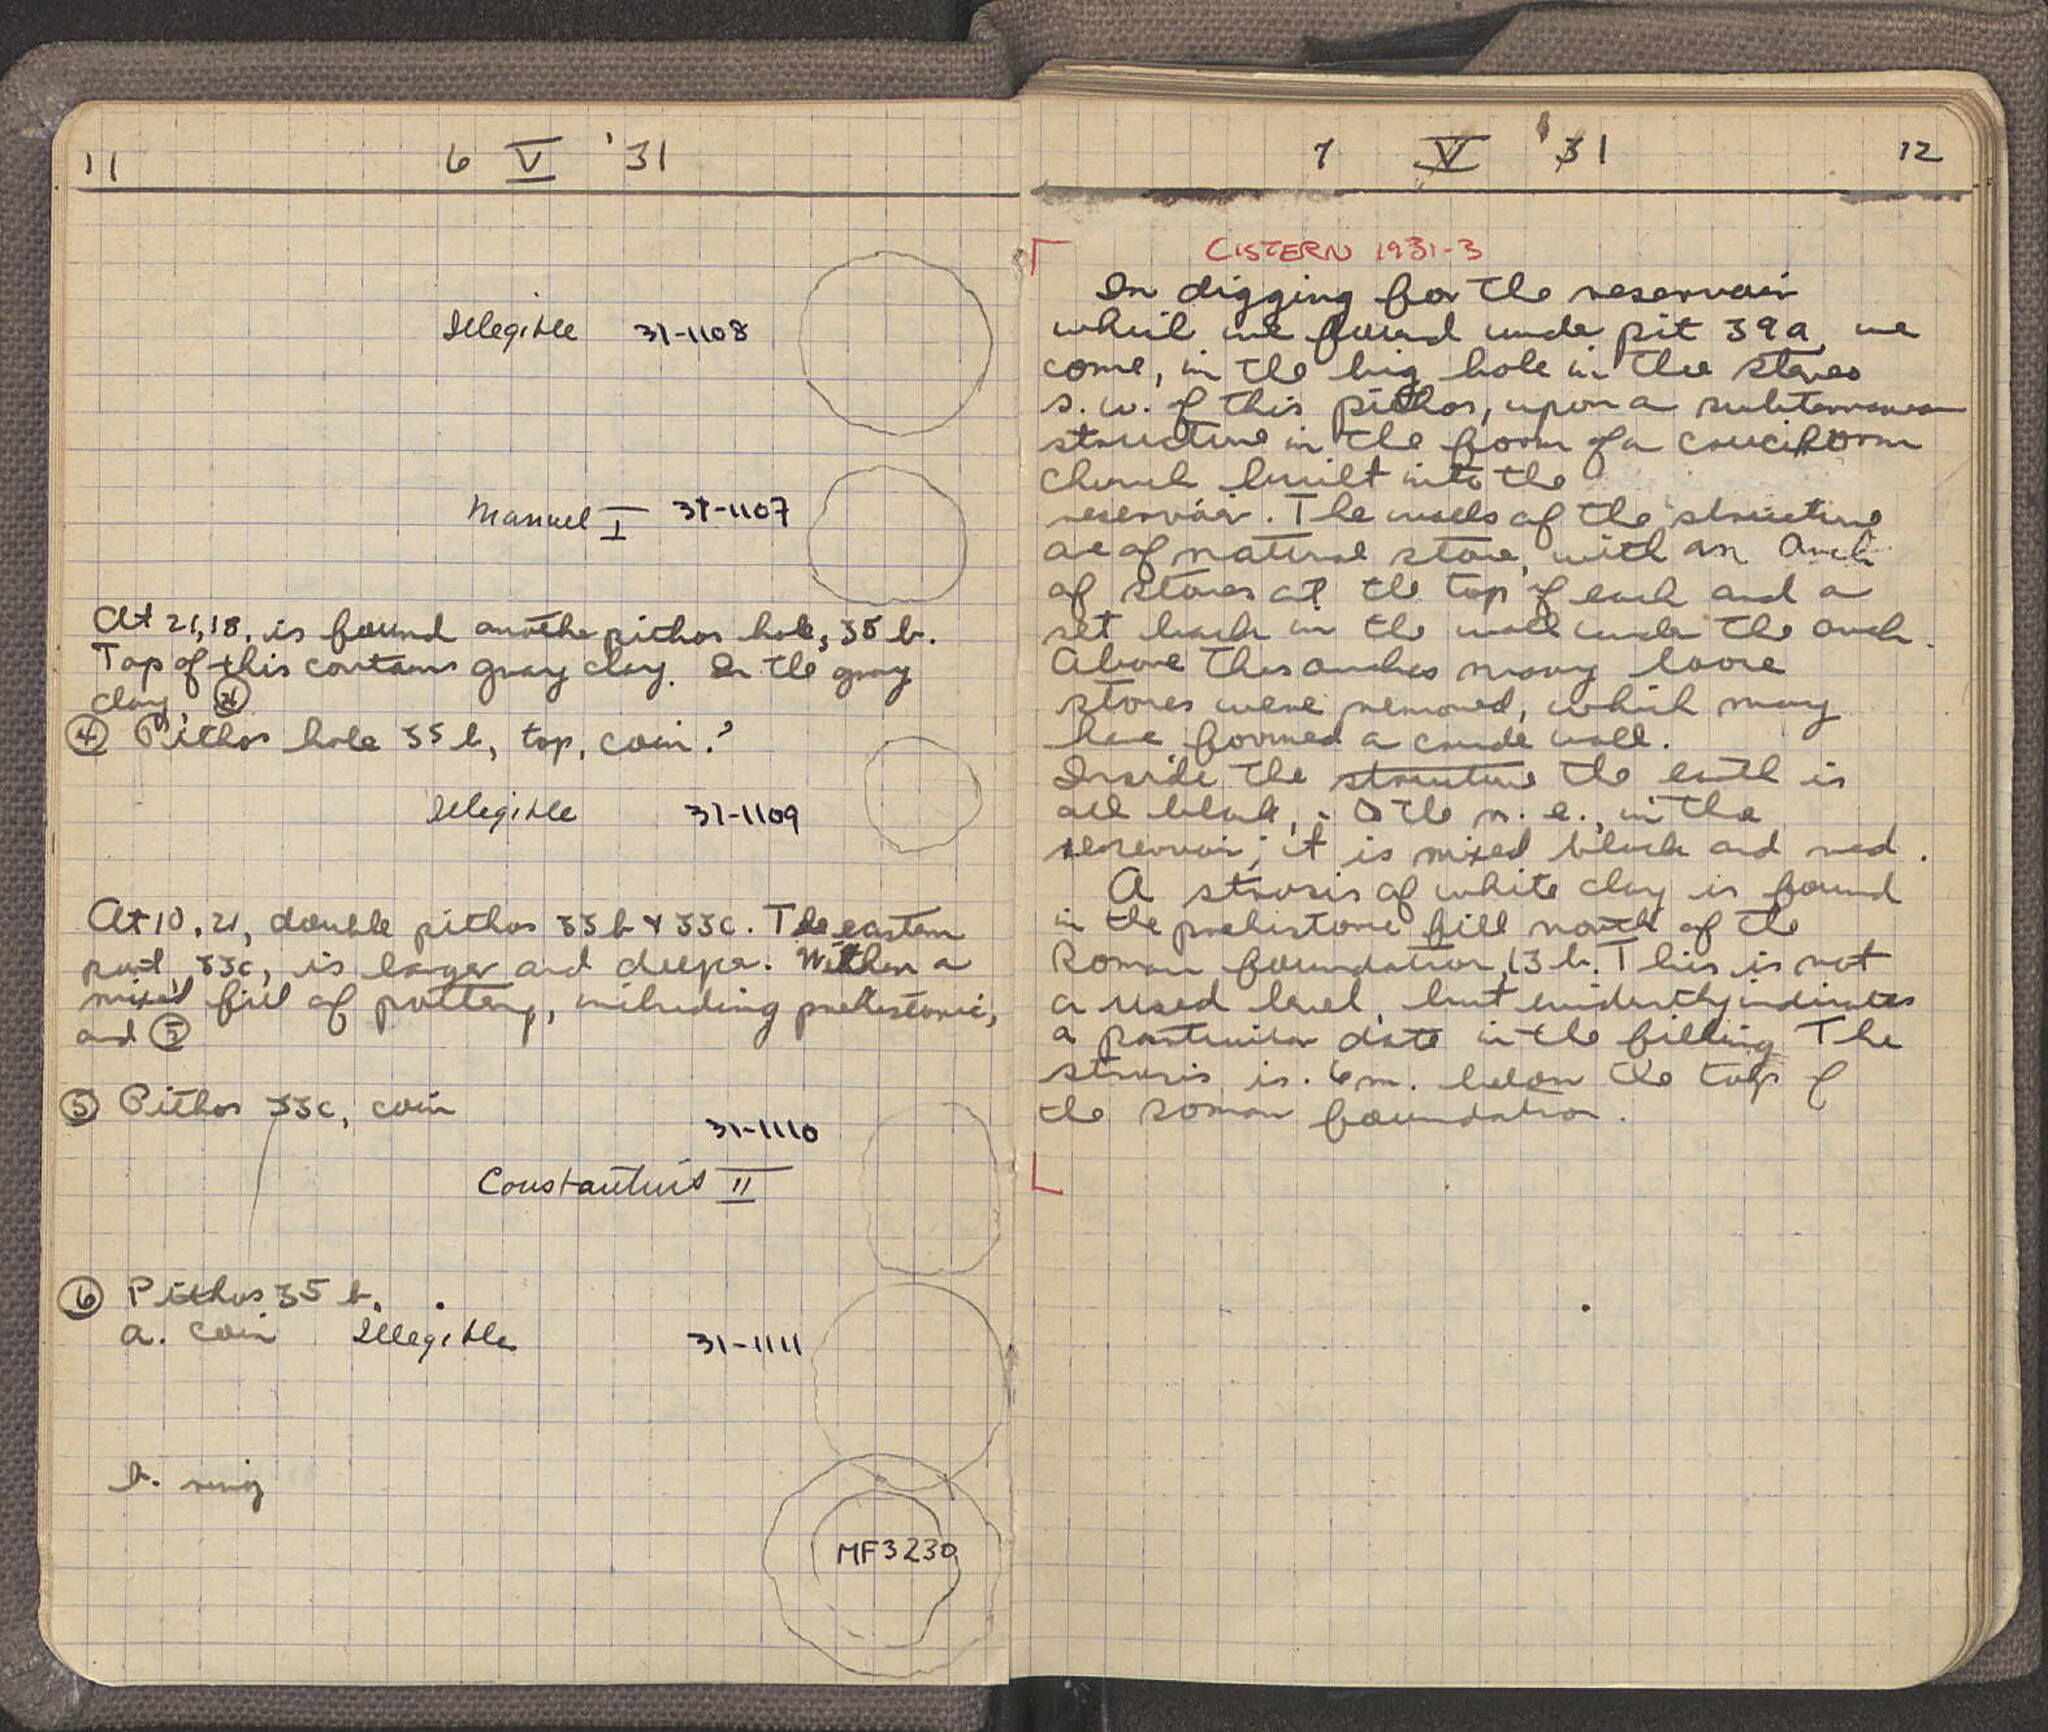 11 6 V '31
Illegible 31-1108
Manuel I 31-1107
At 21,18, is found another pithos hole, 35 b.
Top of this contains gray clay. In the gray
clay, 4
4 Pithos hole 35 b, top, coin.
Illegible 31-1109
At 10, 21, double pithos 33b & 33c. The eastern
part, 33c, is larger and deeper. Within a
mixed fill of pottery, including prehistoric,
and 5
5 Pithos 33c, coin
31-1110
Constantius II
6 Pithos 35 b.
a. coin Illegible 31-1111
b. ring
MF3230
7 V '31 12
CISTERN 1931-3
In digging for the reservoir
which we found under pit 39a, we
come, in the big hole in the stereo
s.w. of this pithos, upon a subterranean
structure in the form of a cruciform
church built into the
reservoir. The walls of the structure
are of natural stone, with an arch
of stones at the top of each and a
set back in the wall under the arch.
Above the arches many loose
stones were removed, which may
have formed a crude wall.
Inside the structure the earth is
all black, to the n.e., in the
reservoir, it is mixed black and red.
A strosis of white clay is found
in the prehistoric fill north of the
Roman foundation, 13 b. This is not
a used level, but evidently indicates
a particular date in the filling. The
strosis is .6m. below the top of
the Roman foundation.